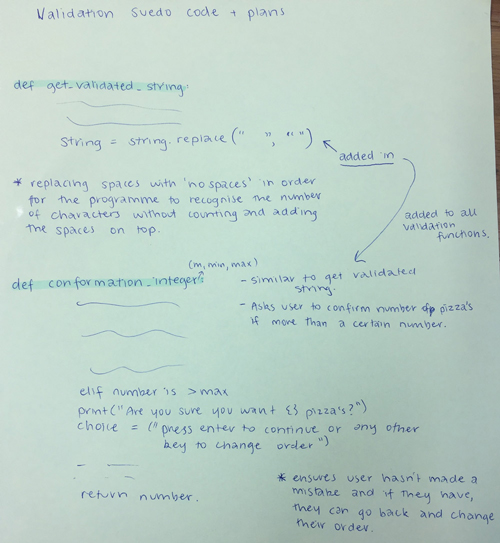 Validation Suedo code + plans
def get_validated_string:
string = string.replace(" ", "")
added in
* replacing spaces with 'no spaces' in order
for the programme to recognise the number
of characters without counting and adding
the spaces on top.
added to all
validation
functions.
(m, min, max)
def conformation_integer:
- Similar to get validated
string.
- Asks user to confirm number of pizza's
if more than a certain number.
elif number is > max
print("Are you sure you want {} pizza's?")
choice = ("press enter to continue or any other
key to change order")
return number.
* ensures user hasn't made a
mistake and if they have,
they can go back and change
their order.